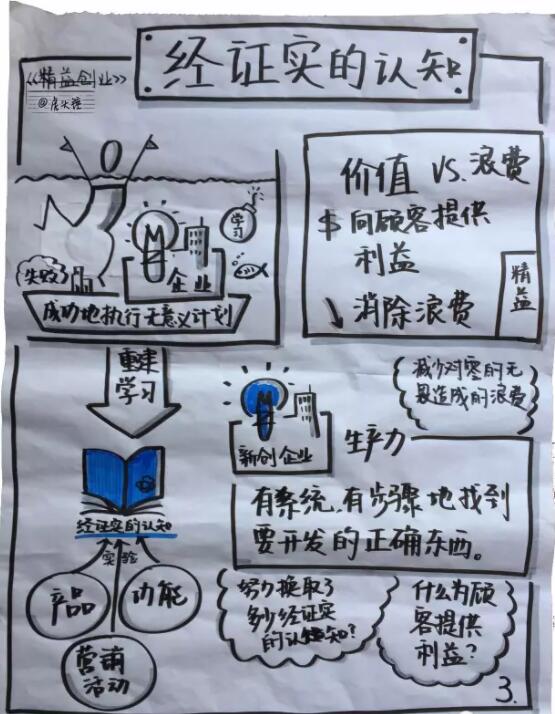 经证实的认知
《精益创业》
学习
失败了
企业
成功地执行无意义计划
价值 VS. 浪费
$ 向顾客提供
利益
↘ 消除浪费
精益
重建
学习
经证实的认知
实验
产品
功能
营销
活动
新创企业
生产力
有系统,有步骤地找到
要开发的正确东西。
努力换取了
多少经证实
的认知?
什么为顾
客提供
利益?
3.